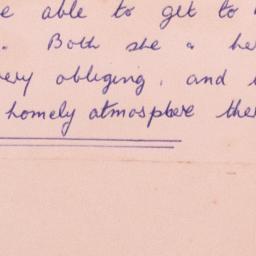 e able to get to
. Both she & he
ery obliging, and
homely atmosphere the